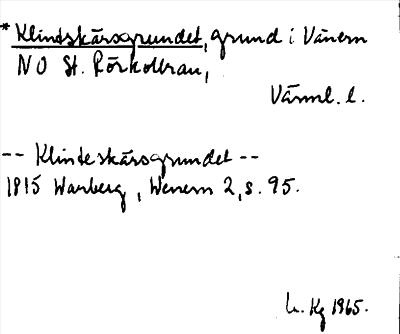 * Klindskärsgrundet, grund i Vänern
NO St. Rörkobbran,
Värml. l.
-- Klindeskärsgrundet --
1815 Warberg, Wenern 2, s. 95.
Kg 1965.